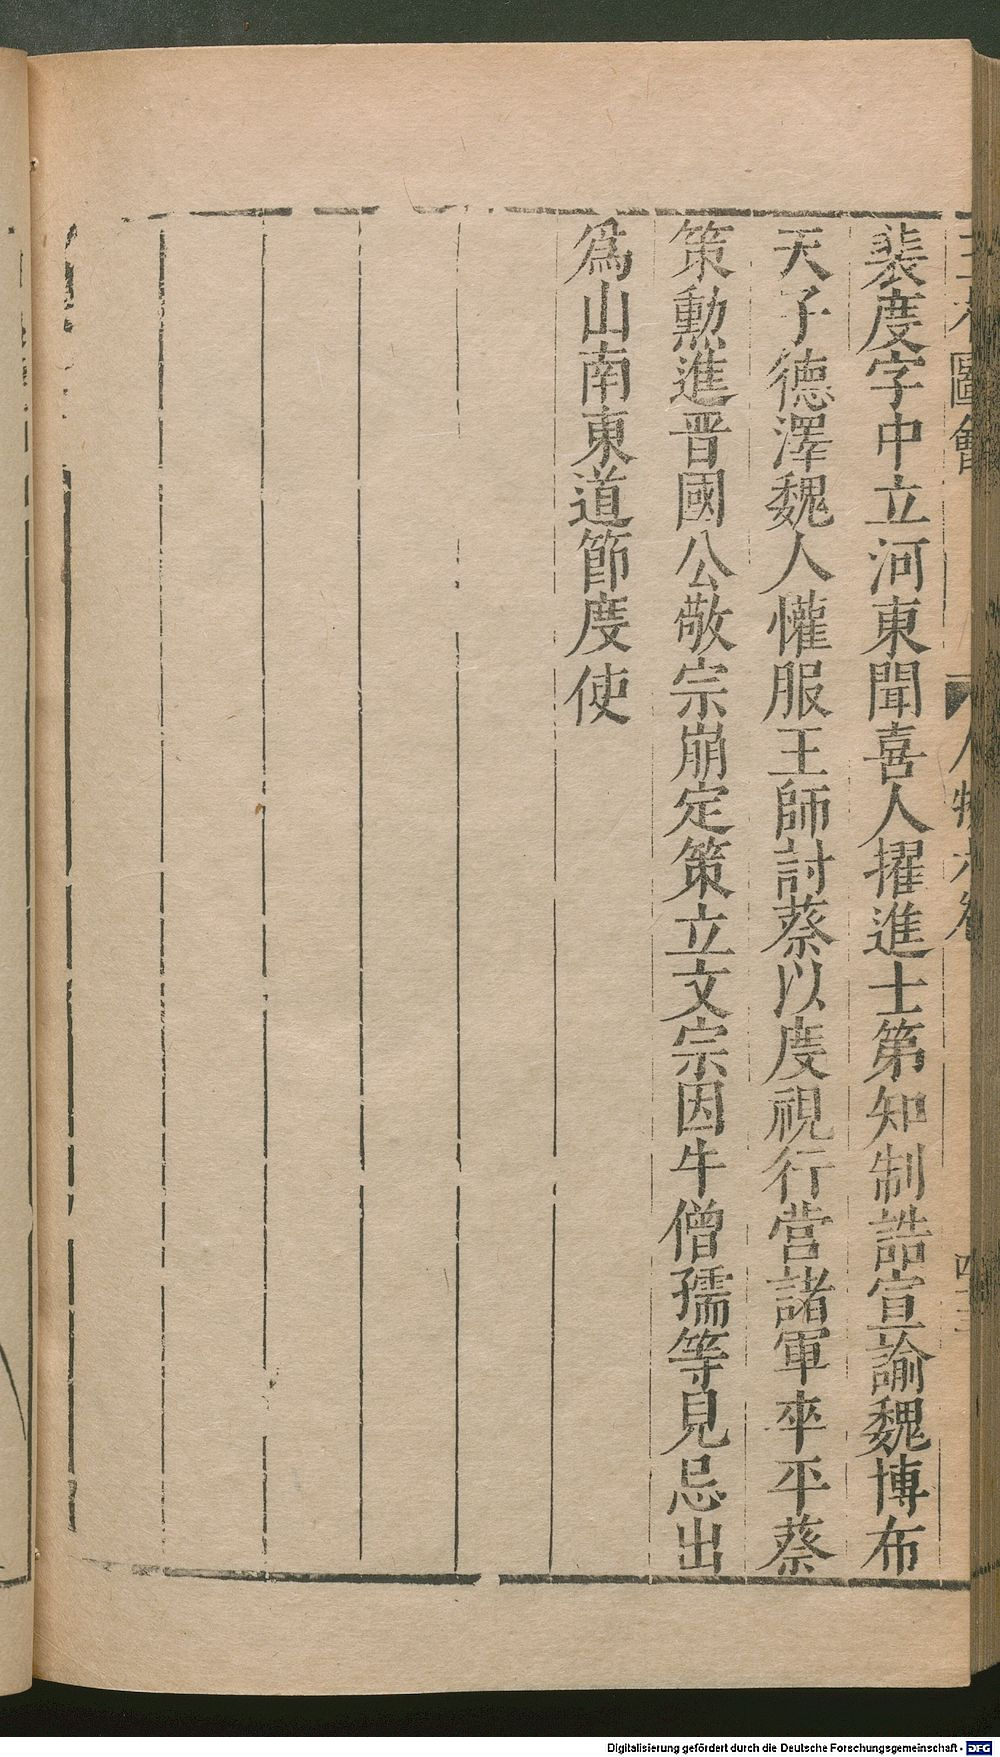 三才圖會 人物六卷
裴度字中立河東聞喜人擢進士第知制誥宣諭魏博布
天子德澤魏人懽服王師討蔡以度視行營諸軍卒平蔡
策勳進晋國公敬宗崩定策立文宗因牛僧孺等見忌出
爲山南東道節度使
Digitalisierung gefördert durch die Deutsche Forschungsgemeinschaft - DFG